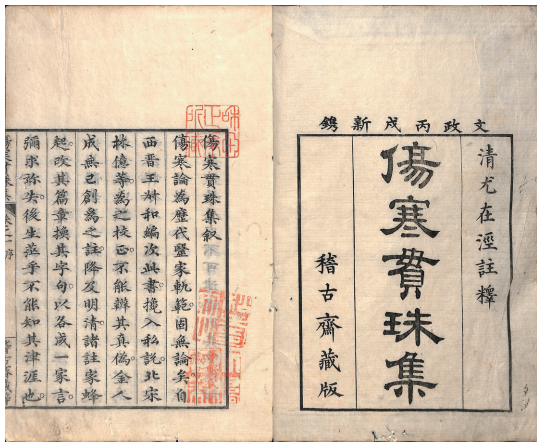 文政丙戌新鐫
清尤在涇註釋
傷寒貫珠集
稽古齋藏版
傷寒貫珠集叙
傷寒論為歷代毉家軌範固無論矣自
西晉王叔和編次此書攙入私說北宋
林億等為之校正不能辨其真偽金人
成無已創為之註降及明清諸註家蜂
起改其篇章換其字句以各成一家言
彌求弥失後生茫乎不能知其津涯也